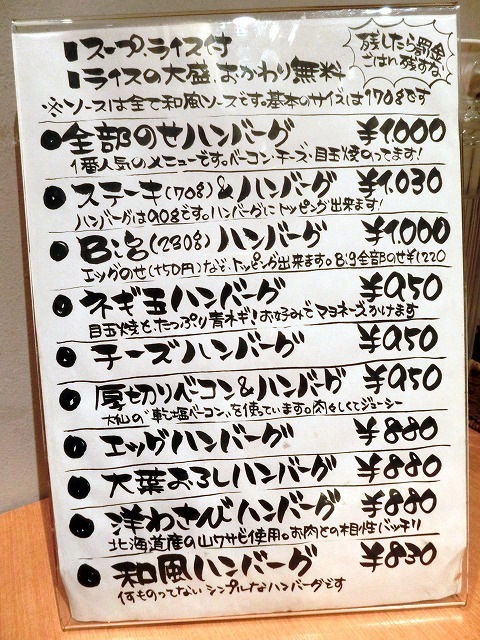 スープ、ライス付
ライスの大盛、おかわり無料
残したら罰金
ごはん残すな
※ソースは全て和風ソースです。基本のサイズは170gです
●全部のせハンバーグ ¥1000
1番人気のメニューです。ベーコン・チーズ・目玉焼のってます!
●ステーキ(70g)&ハンバーグ ¥1.030
ハンバーグは90gです。ハンバーグにトッピング出来ます!
●Big(230g)ハンバーグ ¥1.000
エッグのせ(+50円)など、トッピング出来ます。Big全部のせ¥1220
●ネギ玉ハンバーグ ¥950
目玉焼とたっぷり青ネギ!お好みでマヨネーズかけます
●チーズハンバーグ ¥950
●厚切りベーコン&ハンバーグ ¥950
大山の"乾塩ベーコン"を使っています。肉々しくてジューシー
●エッグハンバーグ ¥880
●大葉おろしハンバーグ ¥880
●洋わさびハンバーグ ¥880
北海道産の山ワサビ使用。お肉との相性バッチリ
●和風ハンバーグ ¥830
何ものってないシンプルなハンバーグです